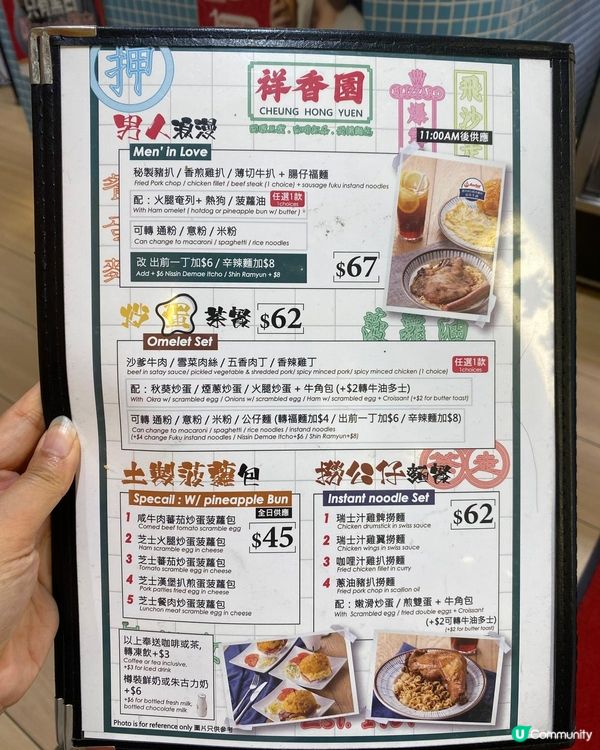 押
祥香園
CHEUNG HONG YUEN
飛沙
男人浪漫
Men' in Love
11:00AM後供應
秘製豬扒 / 香煎雞扒 / 薄切牛扒 + 腸仔福麵
Fried Pork chop / chicken fillet / beef steak (1 choice) + sausage fuku instand noodles
配：火腿奄列+ 熱狗 / 菠蘿油
With Ham omelet ( hotdog or pineapple bun w/ butter )
任選1款
1choices
可轉 通粉 / 意粉 / 米粉
Can change to macaroni / spaghetti / rice noodles
改 出前一丁加$6 / 辛辣麵加$8
Add + $6 Nissin Demae Itcho / Shin Ramyun + $8
$67
炒蛋茶餐
$62
Omelet Set
菠蘿油
沙爹牛肉 / 雪菜肉絲 / 五香肉丁 / 香辣雞丁
beef in satay sauce/ pickled vegetable & shredded pork/ spicy minced pork/ spicy minced chicken (1 choice)
任選1款
1choices
配：秋葵炒蛋 / 煙蔥炒蛋 / 火腿炒蛋 + 牛角包 (+$2轉牛油多士)
With Okra w/ scrambled egg / Onions w/ scrambled egg / Ham w/ scrambled egg + Croissant (+$2 for butter toast)
可轉 通粉 / 意粉 / 米粉 / 公仔麵 (轉福麵加$4 / 出前一丁加$6 / 辛辣麵加$8)
Can change to macaroni / spaghetti / rice noodles / instand noodles
(+$4 change Fuku instand noodles / Nissin Demae Itcho+$6 / Shin Ramyun+$8)
土製菠蘿包
Specail : W/ pineapple Bun
全日供應
$45
1 咸牛肉蕃茄炒蛋菠蘿包
Corned beef tomato scramble egg
2 芝士火腿炒蛋菠蘿包
Ham scramble egg in cheese
3 芝士蕃茄炒蛋菠蘿包
Tomato scramble egg in cheese
4 芝士漢堡扒煎蛋菠蘿包
Pork patties fried egg in cheese
5 芝士餐肉炒蛋菠蘿包
Luncheon meat scramble egg in cheese
撈公仔麵餐
Instant noodle Set
$62
1 瑞士汁雞髀撈麵
Chicken drumstick in swiss sauce
2 瑞士汁雞翼撈麵
Chicken wings in swiss sauce
3 咖喱汁雞扒撈麵
Fried chicken fillet in curry
4 蔥油豬扒撈麵
Fried pork chop in scallion oil
配：嫩滑炒蛋 / 煎雙蛋 + 牛角包
With Scrambled egg / fried double eggs + Croissant
(+$2可轉牛油多士)
(+$2 for butter toast)
以上奉送咖啡或茶,
轉凍飲+$3
Coffee or tea inclusive,
+$3 for iced drink
樽裝鮮奶或朱古力奶
+$6
+$6 for bottled fresh milk,
bottled chocolate milk
Photo is for reference only 圖片只供參考
U Community